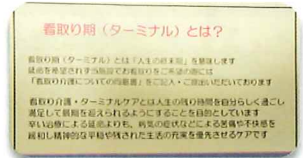 看取り期（ターミナル）とは？
看取り期（ターミナル）とは「人生の終末期」を意味します
延命を希望されず当施設でお看取りをご希望の際には
「看取り介護についての同意書」をご記入・ご提出いただいております
看取り介護・ターミナルケアとは人生の残り時間を自分らしく過ごし
満足して最期を迎えられるようにすることを目的としています
辛い治療による延命よりも、病気の症状などによる苦痛や不快感を
緩和し精神的な平穏や残された生活の充実を優先させるケアです